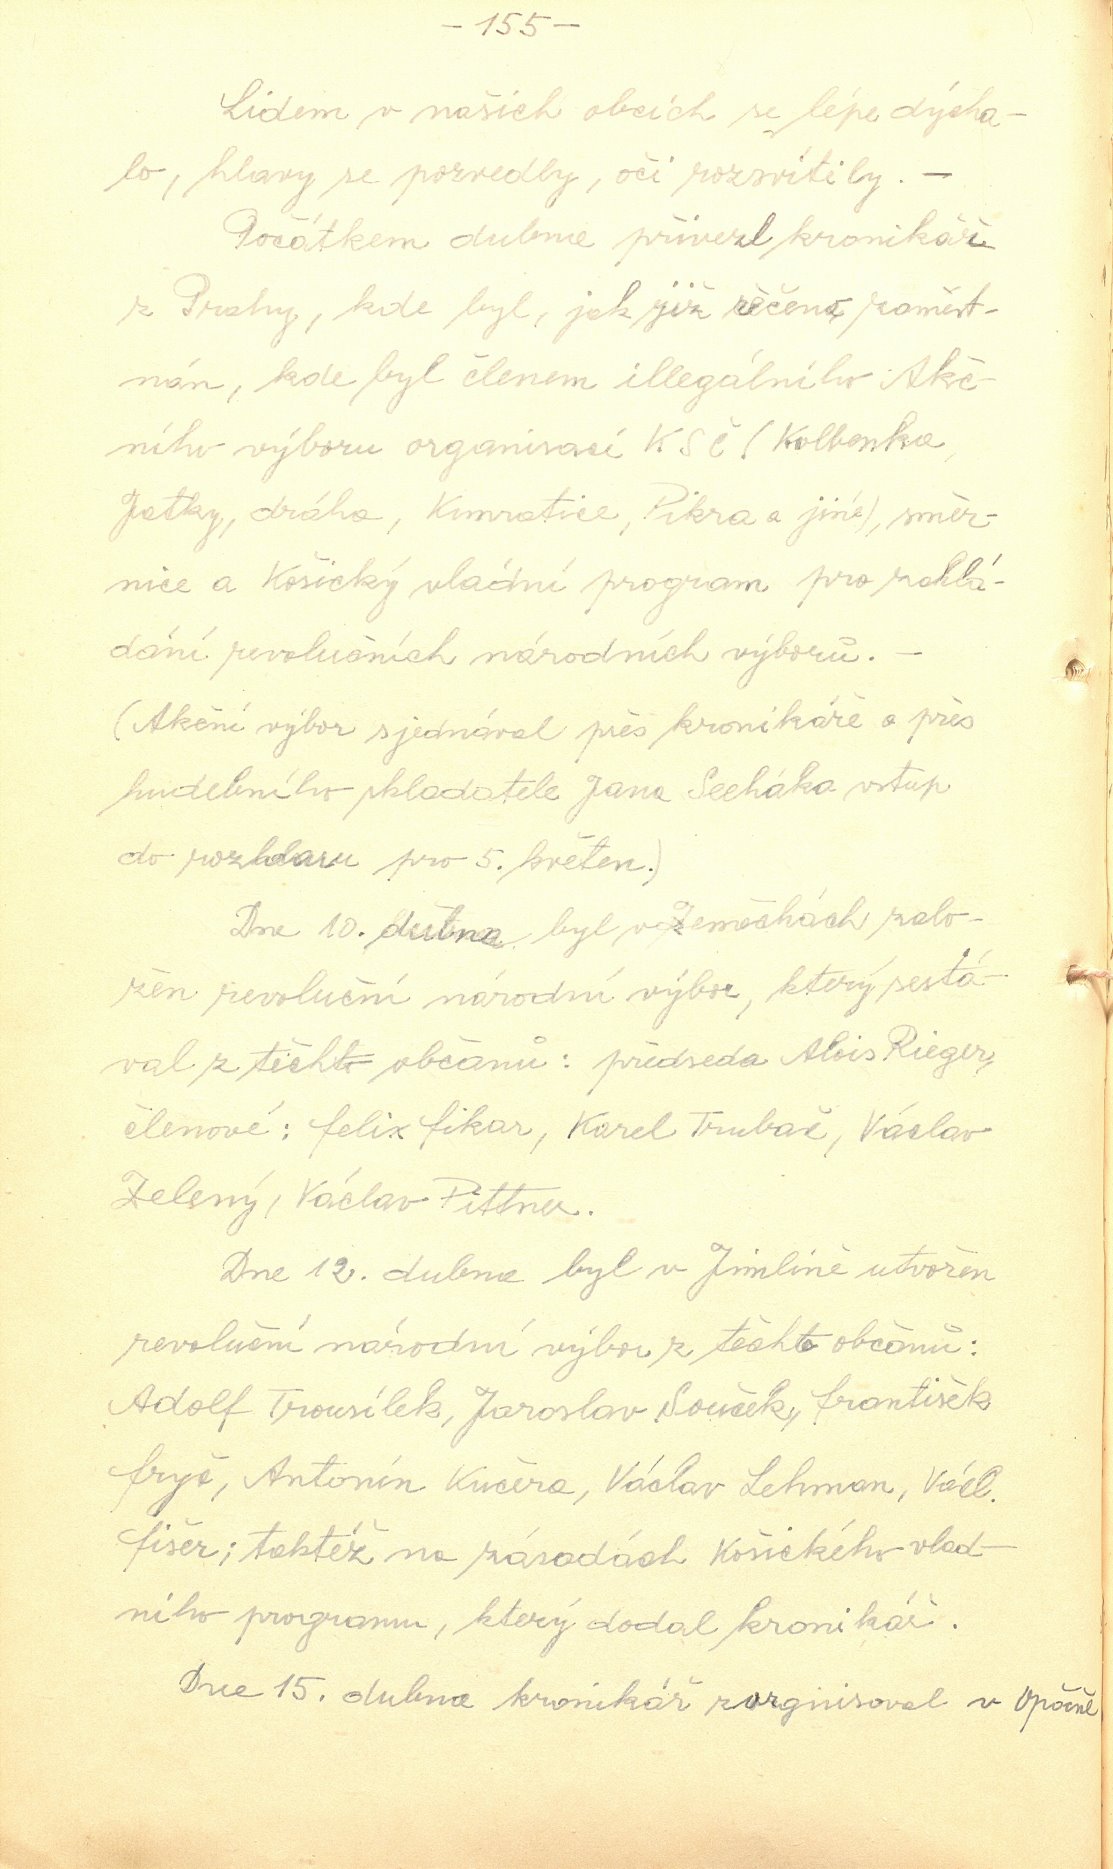 - 155 -
Lidem v našich obcích se lépe dýcha-
lo, hlavy se pozvedly, oči rozsvítily. -
Počátkem dubna přivezl kronikář
z Prahy, kde byl, jak již řečeno, zaměst-
nán, kde byl členem illegálního Akč-
ního výboru organisací KSČ (Kolbenka,
Jatky, dráha, Kunratice, Pikra a jiné), směr-
nice a Košický vládní program pro zaklá-
dání revolučních národních výborů. -
(Akční výbor sjednával přes kronikáře a přes
hudebního skladatele Jana Secháka vstup
do rozhlasu pro 5. květen.)
Dne 10. dubna byl v Zeměchách zalo-
žen revoluční národní výbor, který sestá-
val z těchto občanů: předseda Alois Rieger,
členové: Felix Fikar, Karel Trubač, Václav
Zelený, Václav Pittner.
Dne 12. dubna byl v Jimlíně utvořen
revoluční národní výbor z těchto občanů:
Adolf Trousílek, Jaroslav Souček, František
Fryč, Antonín Kučera, Václav Lehman, Václ.
Fišer; taktéž na zásadách Košického vlád-
ního programu, který dodal kronikář.
Dne 15. dubna kronikář zorgnisoval v Opočně